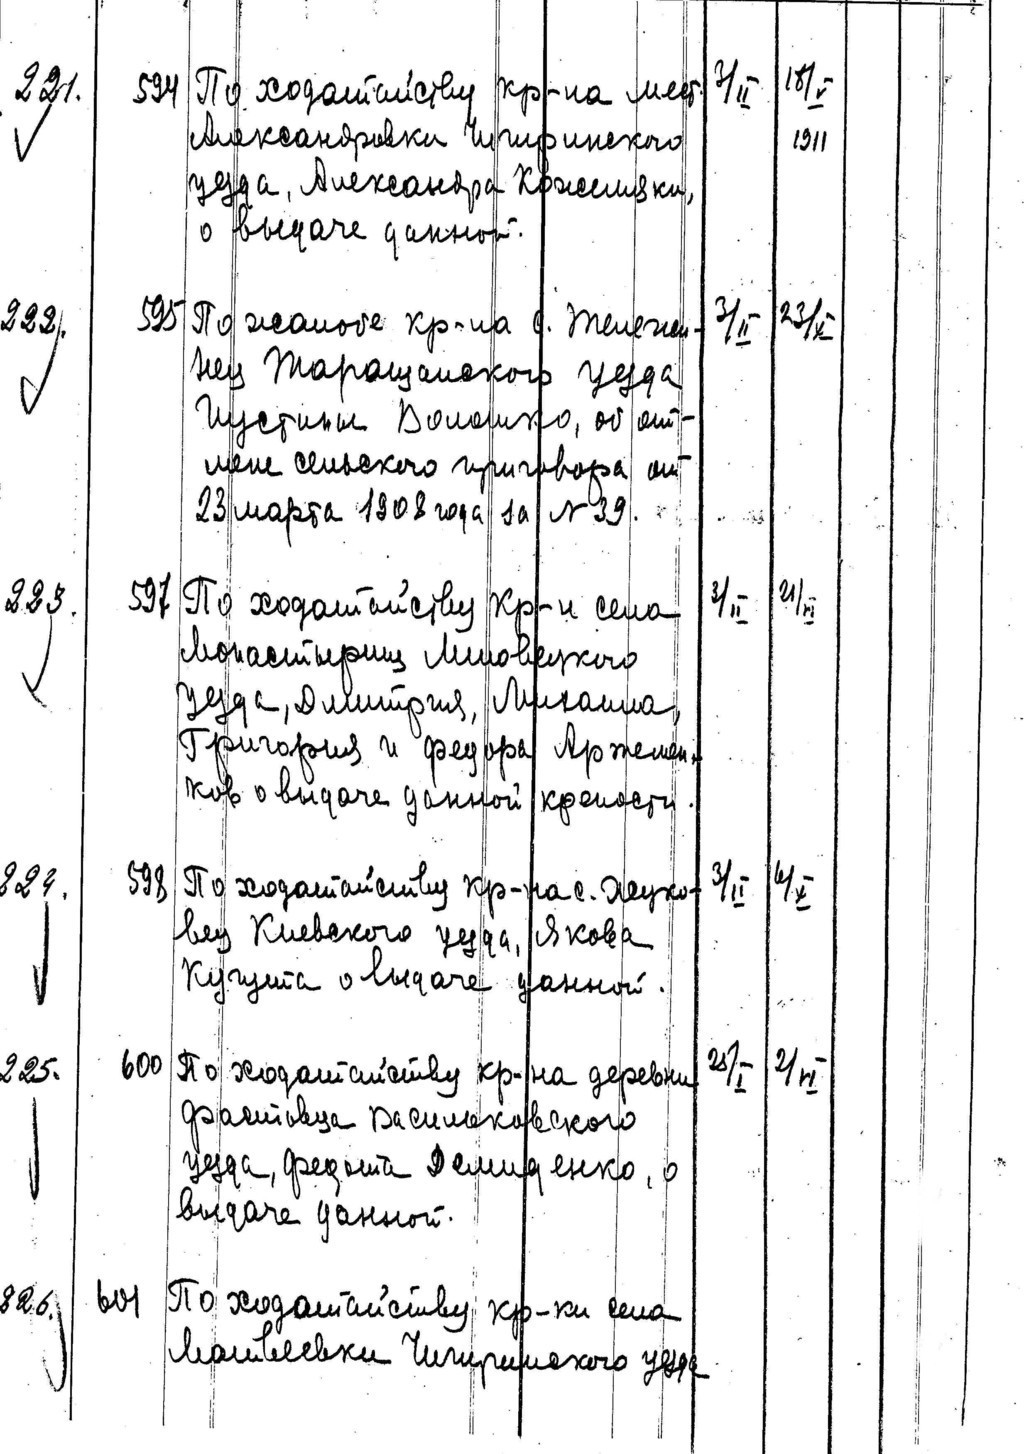 221. 594 По ходатайству кр-на мест. 3/II 18/V
Александровки Чигиринского 1911
уезда, Александра Кожемяки,
о выдаче данной.
222. 595 По жалобе кр-на с. Железен- 3/II 23/X
нец Таращанского уезда
Иустины Волошко, об от-
мене сельского приговора от
23 марта 1908 года за № 39.
223. 597 По ходатайству кр-н села 3/II 21/VI
Монастырищ Липовецкого
уезда, Дмитрия, Михаила,
Григория и Федора Артемен-
ков о выдаче данной крепости.
224. 598 По ходатайству кр-на с. 3/II
вец Киевского уезда, Якова
о выдаче данной.
225. 600 По ходатайству кр-на деревни 25/I 2/VI
Фастовца Васильковского
уезда, Федота Демиденко, о
выдаче данной.
226. 601 По ходатайству кр-ки села
Матвеевки Чигиринского уезда